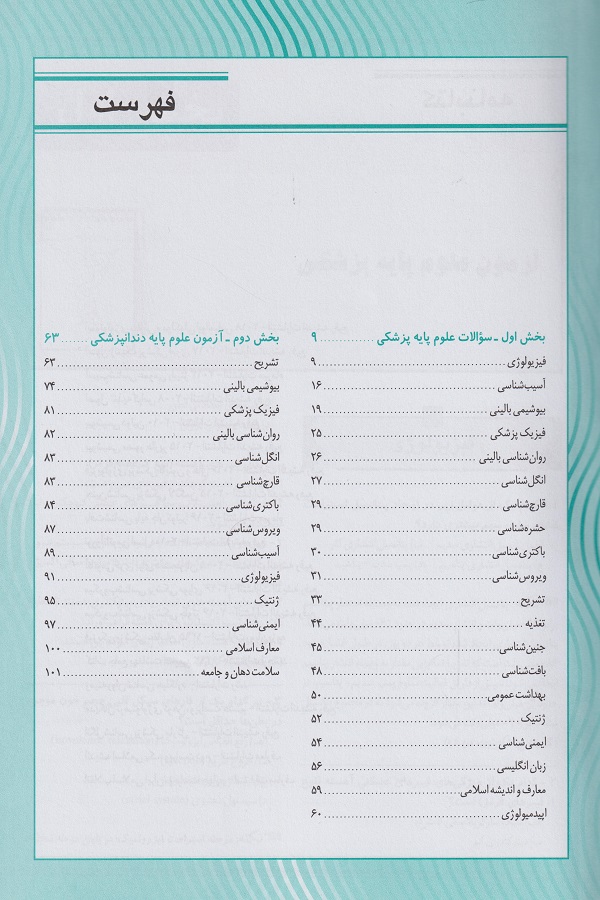 فهرست
بخش اول ـ سؤالات علوم پایه پزشکی ............ ۹
فیزیولوژی ............ ۹
آسیب‌شناسی ............ ۱۶
بیوشیمی بالینی ............ ۱۹
فیزیک پزشکی ............ ۲۵
روان‌شناسی بالینی ............ ۲۶
انگل‌شناسی ............ ۲۷
قارچ‌شناسی ............ ۲۹
حشره‌شناسی ............ ۲۹
باکتری‌شناسی ............ ۳۰
ویروس‌شناسی ............ ۳۱
تشریح ............ ۳۳
تغذیه ............ ۴۴
جنین‌شناسی ............ ۴۵
بافت‌شناسی ............ ۴۸
بهداشت عمومی ............ ۵۰
ژنتیک ............ ۵۲
ایمنی‌شناسی ............ ۵۴
زبان انگلیسی ............ ۵۶
معارف و اندیشه اسلامی ............ ۵۹
اپیدمیولوژی ............ ۶۰
بخش دوم ـ آزمون علوم پایه دندانپزشکی ............ ۶۳
تشریح ............ ۶۳
بیوشیمی بالینی ............ ۷۴
فیزیک پزشکی ............ ۸۱
روان‌شناسی بالینی ............ ۸۲
انگل‌شناسی ............ ۸۳
قارچ‌شناسی ............ ۸۳
باکتری‌شناسی ............ ۸۴
ویروس‌شناسی ............ ۸۷
آسیب‌شناسی ............ ۸۹
فیزیولوژی ............ ۹۱
ژنتیک ............ ۹۵
ایمنی‌شناسی ............ ۹۷
معارف اسلامی ............ ۱۰۰
سلامت دهان و جامعه ............ ۱۰۱